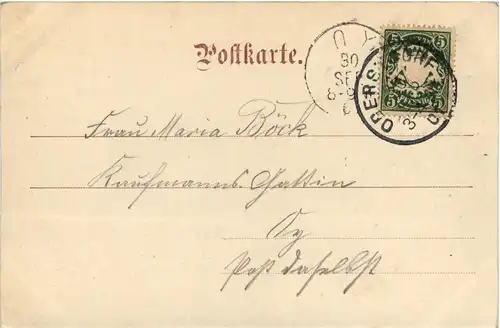 Postkarte.
5 5
5 5
OY
30
SEP
8-9
OBERS DORF
Frau Maria Böck
Kaufmanns Gattin
Oy
Post daselbst